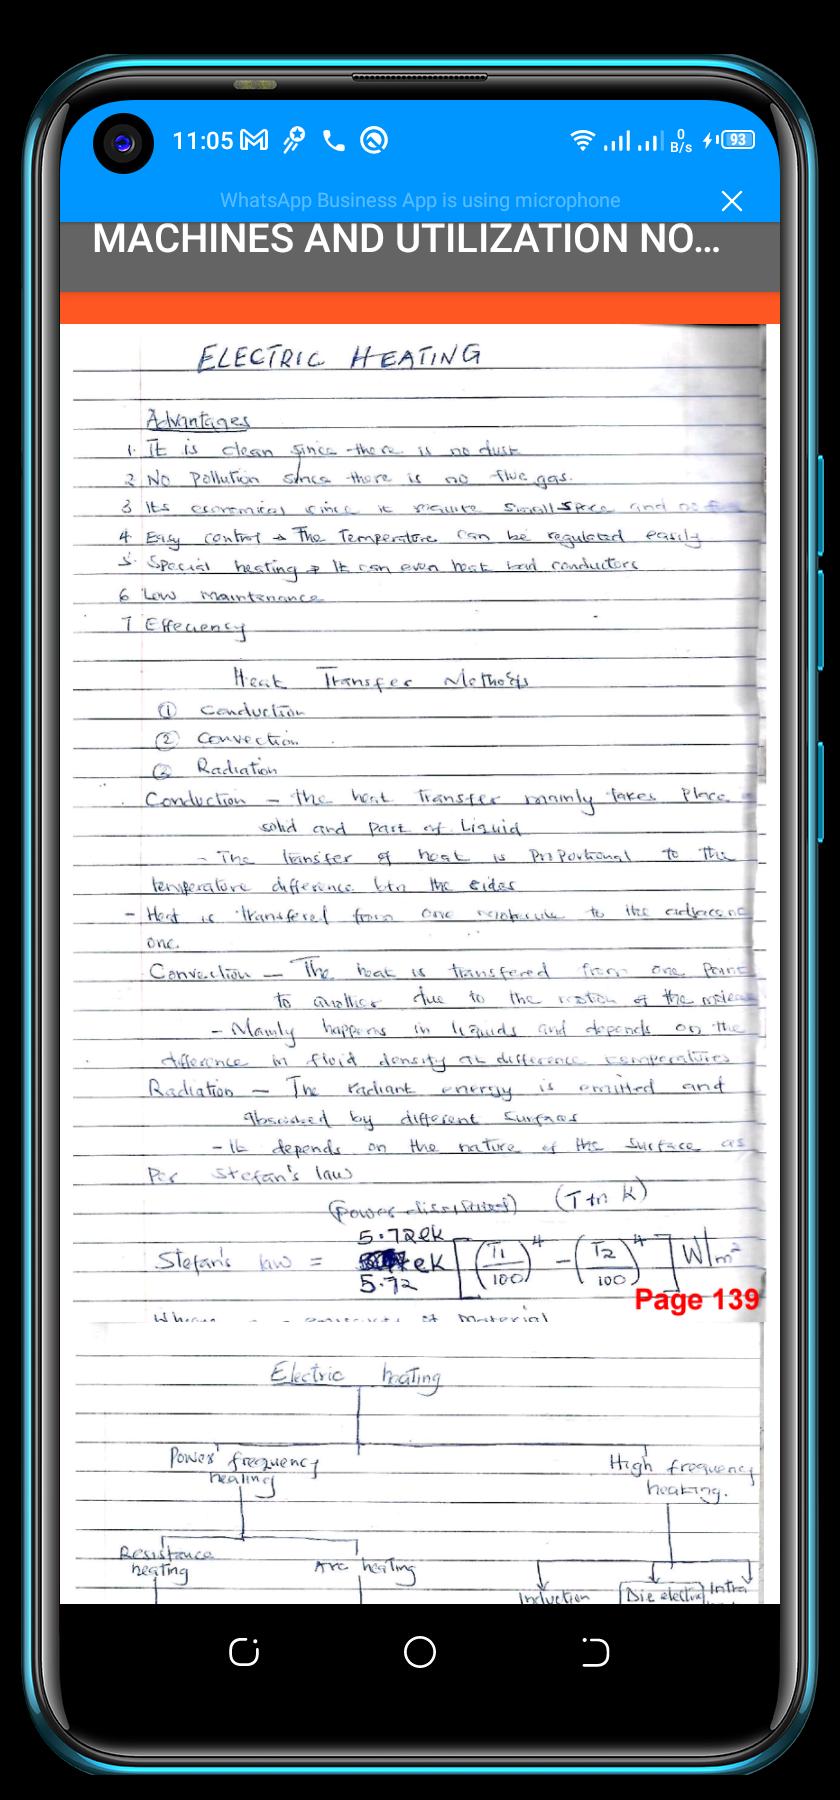 11:05
0
B/s
93
WhatsApp Business App is using microphone
MACHINES AND UTILIZATION NO...
ELECTRIC HEATING
Advantages
1. It is clean since there is no dust
2 No pollution since there is no flue gas.
3 Its economical since it require small space and no
4 Easy control → The Temperature can be regulated easily
5. Special heating → It can even heat bad conductors
6 Low maintenance
7 Effeciency
Heat Transfer Methods
① Conduction
② Convection
③ Radiation
Conduction - the heat Transfer mainly takes place
solid and part of Liquid
- The transfer of heat is Proportional to the
temperature difference btn the sides
- Heat is transfered from one molecule to the
one.
Convection - The heat is transfered from one Point
to another due to the motion of the
- Mainly happens in liquids and depends on the
difference in fluid density at difference temperatures
Radiation - The radiant energy is emitted and
absorbed by different surfaces
- It depends on the nature of the surface as
Per Stefan's law
(power dissipated) (T in K)
5.72ek
Stefan's law = ek[(T1/100)^4 - (T2/100)^4] W/m²
5.72
Page 139
Electric heating
Power frequency
heating
High frequency
heating.
Resistance
heating
Arc heating
Induction
Die electric
Intra